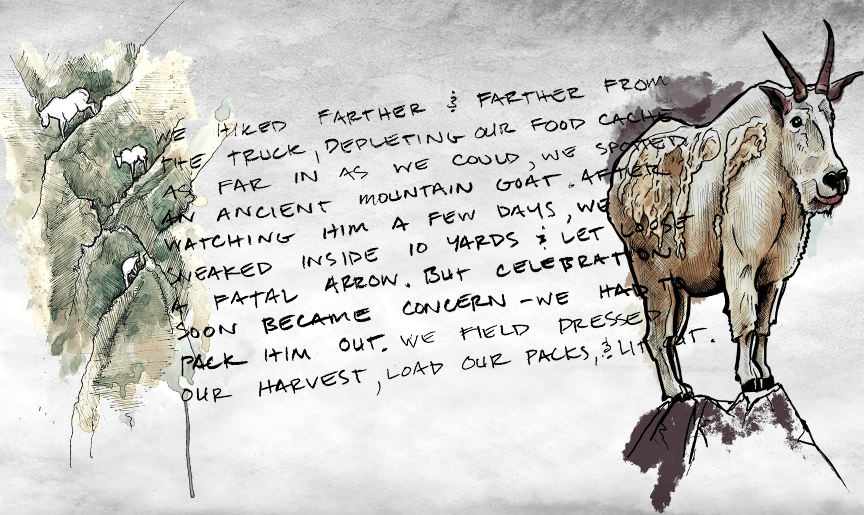 WE HIKED FARTHER & FARTHER FROM
THE TRUCK, DEPLETING OUR FOOD CACHE
AS FAR IN AS WE COULD, WE SPOTTED
AN ANCIENT MOUNTAIN GOAT. AFTER
WATCHING HIM A FEW DAYS, WE
SNEAKED INSIDE 10 YARDS & LET LOOSE
A FATAL ARROW. BUT CELEBRATION
SOON BECAME CONCERN - WE HAD TO
PACK HIM OUT. WE FIELD DRESSED
OUR HARVEST, LOAD OUR PACKS, & LIT OUT.